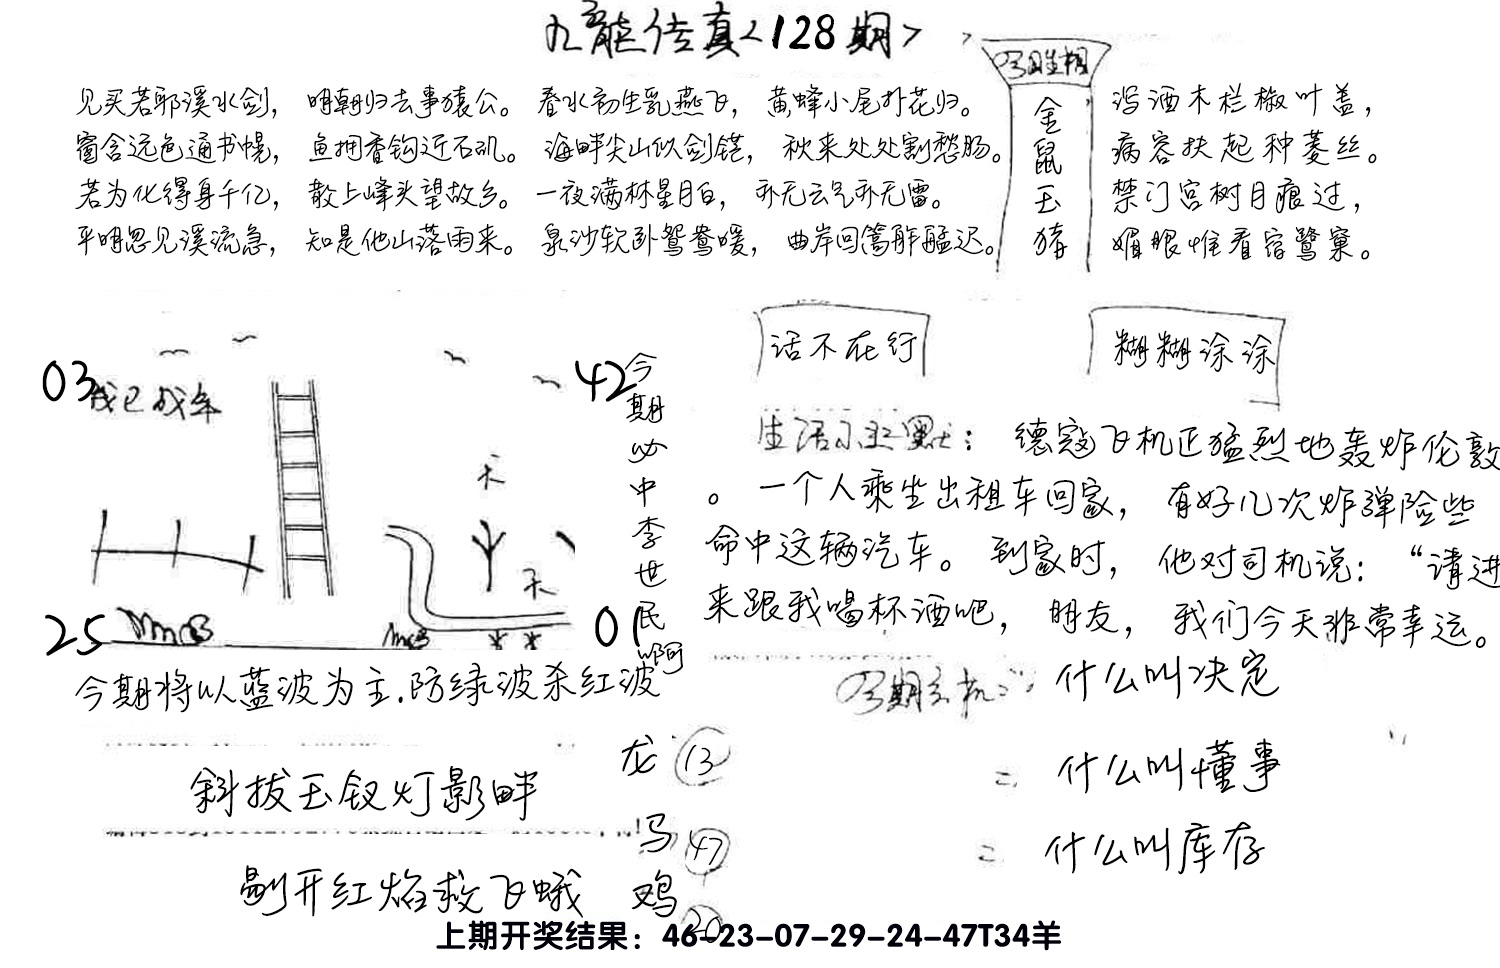 九龙传真<128期>
见买若耶溪水剑，明朝归去事猿公。春水初生乳燕飞，黄蜂小尾扑花归。
窗含远色通书幌，鱼拥香钩近石矶。海畔尖山似剑铓，秋来处处割愁肠。
若为化得身千亿，散上峰头望故乡。一夜满林星月白，亦无云气亦无雷。
平明忽见溪流急，知是他山落雨来。泉沙软卧鸳鸯暖，曲岸回篙舴艋迟。
金鼠玉猪
泻酒木栏椒叶盖，
病容扶起种菱丝。
禁门宫树月痕过，
媚眼惟看宿鹭窠。
03
42
25
01
天
天
今期必中李世民啊
今期将以蓝波为主.防绿波杀红波
话不在行
糊糊涂涂
德寇飞机正猛烈地轰炸伦敦
。一个人乘坐出租车回家，有好几次炸弹险些
命中这辆汽车。到家时，他对司机说：“请进
来跟我喝杯酒吧，朋友，我们今天非常幸运。
什么叫决定
什么叫懂事
什么叫库存
斜拔玉钗灯影畔
剔开红焰救飞蛾
龙 13
马 47
鸡 20
上期开奖结果：46-23-07-29-24-47T34羊